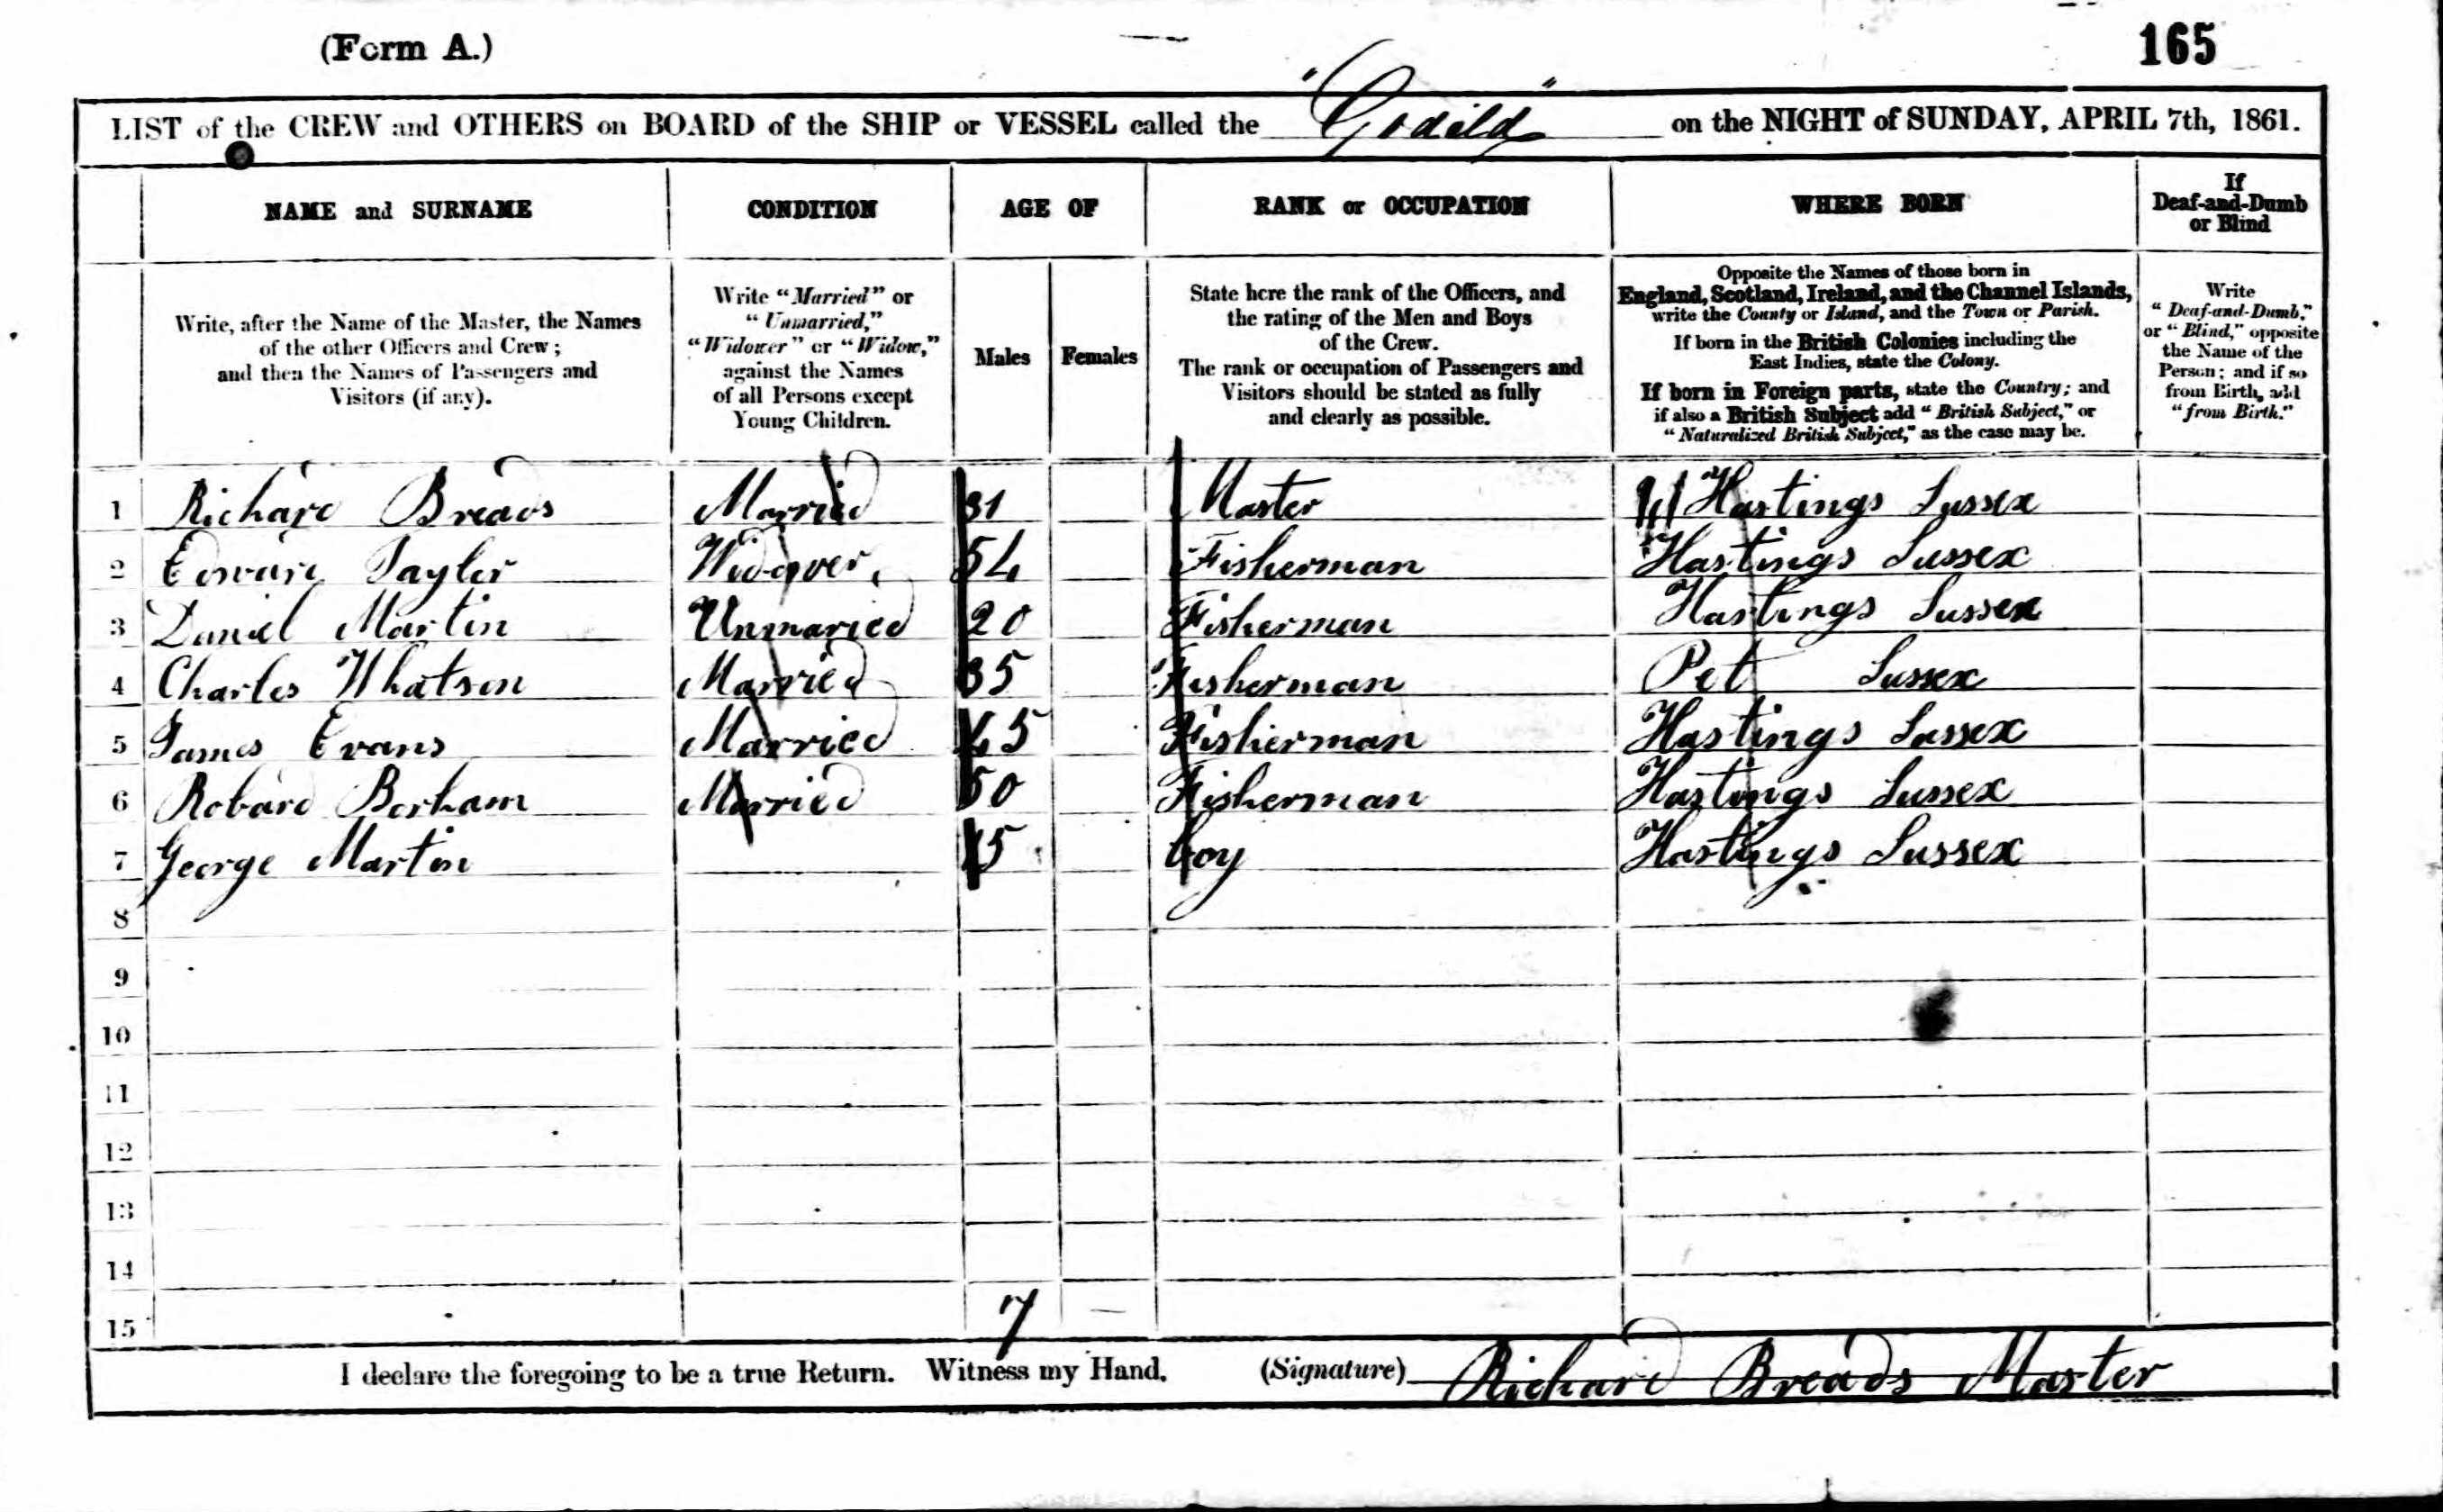 (Form A.)
165
LIST of the CREW and OTHERS on BOARD of the SHIP or VESSEL called the "Godild" on the NIGHT of SUNDAY, APRIL 7th, 1861.
NAME and SURNAME CONDITION AGE OF RANK or OCCUPATION WHERE BORN If Deaf-and-Dumb or Blind
Write, after the Name of the Master, the Names
of the other Officers and Crew;
and then the Names of Passengers and
Visitors (if any).
Write "Married" or
"Unmarried,"
"Widower" or "Widow,"
against the Names
of all Persons except
Young Children.
Males Females
State here the rank of the Officers, and
the rating of the Men and Boys
of the Crew.
The rank or occupation of Passengers and
Visitors should be stated as fully
and clearly as possible.
Opposite the Names of those born in
England, Scotland, Ireland, and the Channel Islands,
write the County or Island, and the Town or Parish.
If born in the British Colonies including the
East Indies, state the Colony.
If born in Foreign parts, state the Country; and
if also a British Subject add "British Subject," or
"Naturalized British Subject," as the case may be.
Write
"Deaf-and-Dumb,"
or "Blind," opposite
the Name of the
Person; and if so
from Birth, add
"from Birth."
1 Richard Breads Married 31 Master Hastings Sussex
2 Edward Tayler Widower 54 Fisherman Hastings Sussex
3 Daniel Martin Unmaried 20 Fisherman Hastings Sussex
4 Charles Whatson Married 35 Fisherman Pet Sussex
5 James Evans Married 45 Fisherman Hastings Sussex
6 Robard Borham Married 50 Fisherman Hastings Sussex
7 George Martin 15 boy Hastings Sussex
8
9
10
11
12
13
14
15 7 —
I declare the foregoing to be a true Return. Witness my Hand. (Signature) Richard Breads Master